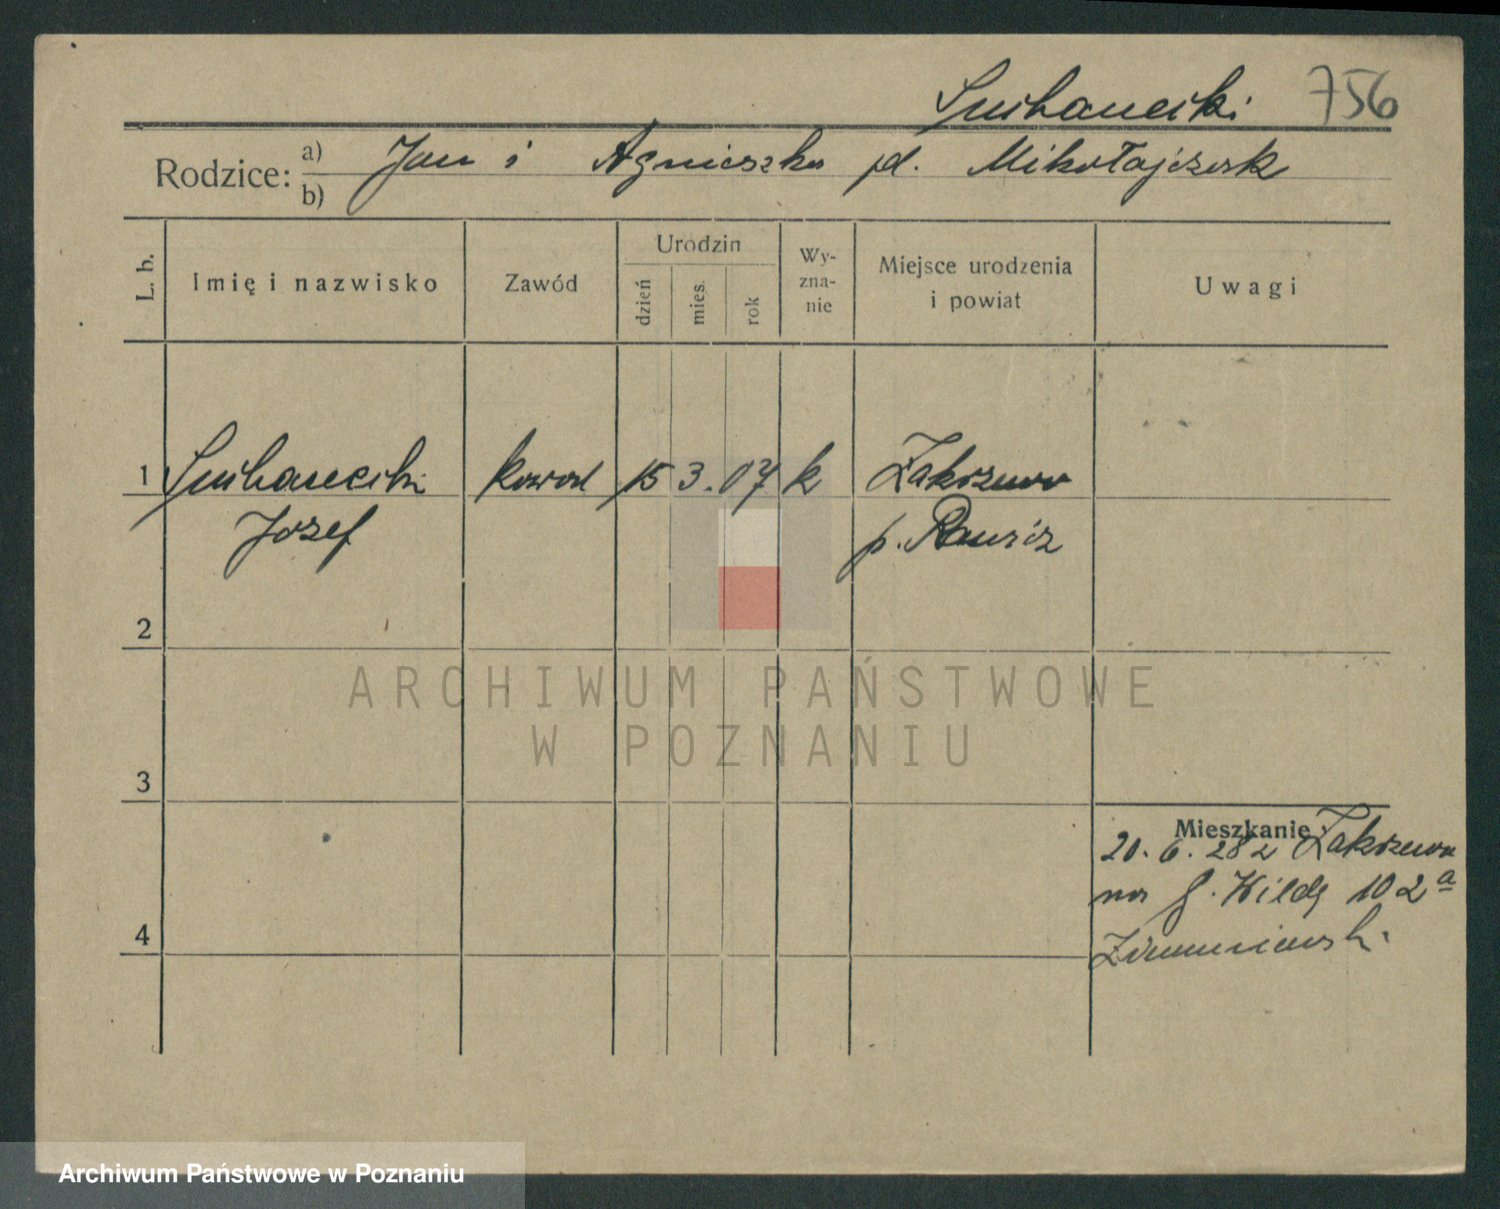 Suchanecki 756
Rodzice:
a) Jan i Agnieszka pd. Mikołajczak
b)
L. b.
Imię i nazwisko
Zawód
Urodzin
dzień
mies.
rok
Wy-
zna-
nie
Miejsce urodzenia
i powiat
Uwagi
1 Suchanecki kowal 15 3. 07 k Zakrzewo
Jozef p. Rawicz
2
3
4
Mieszkanie
20. 6. 28 z Zakrzewa
na G. Wildę 102a
ARCHIWUM PAŃSTWOWE
W POZNANIU
Archiwum Państwowe w Poznaniu